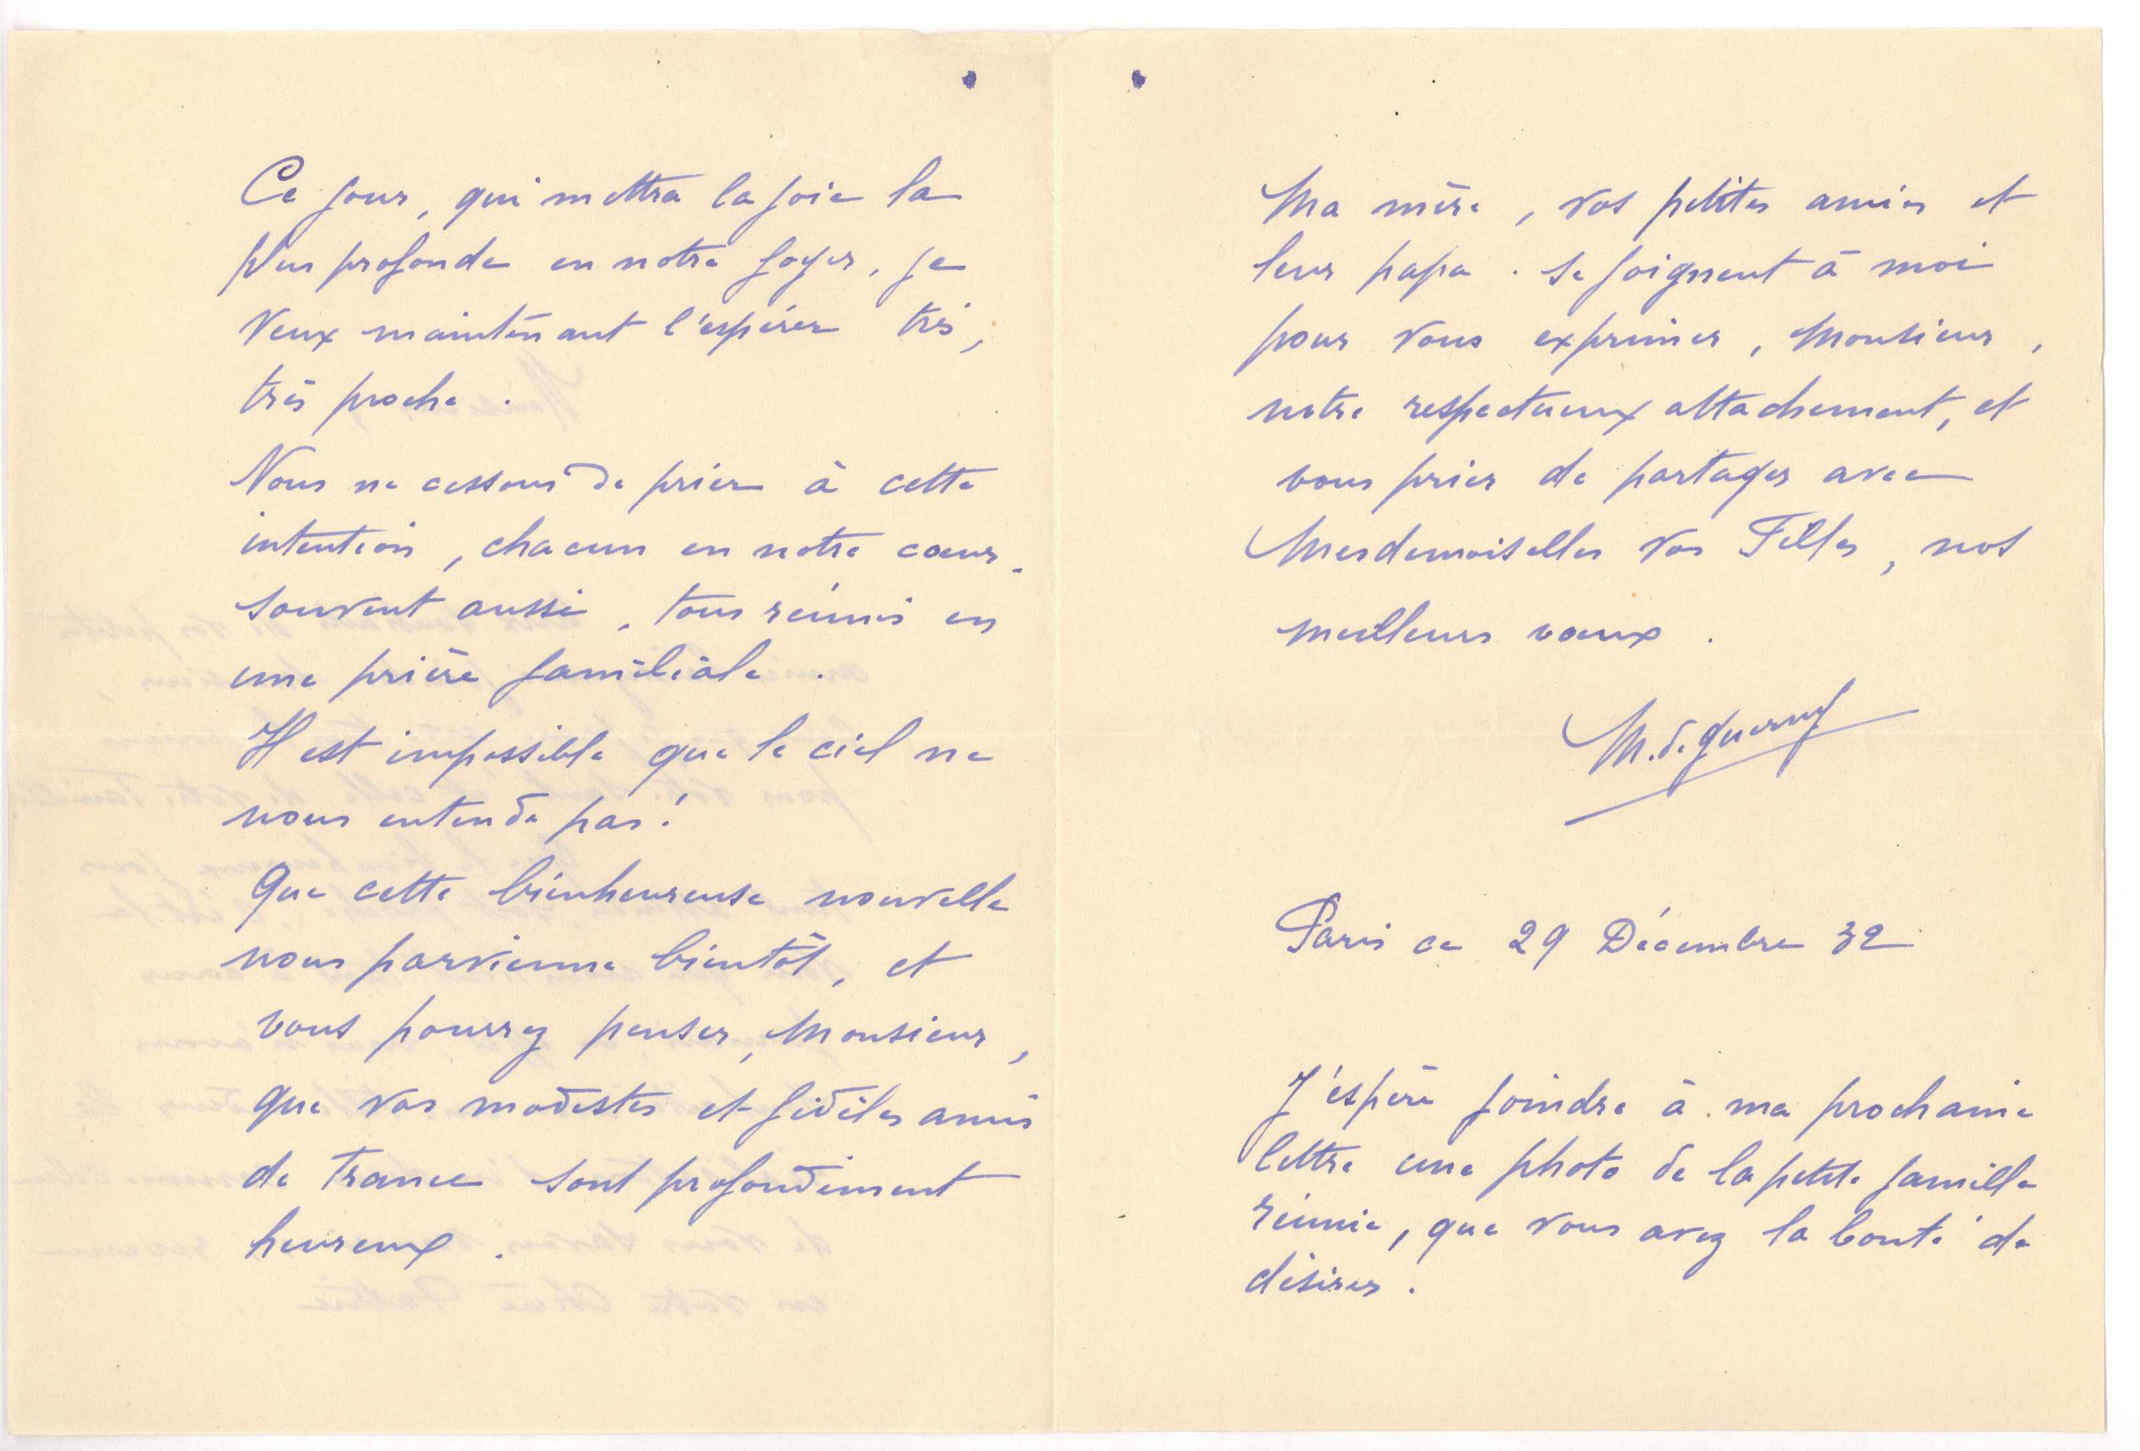 Ce jour, qui mettra la joie la
plus profonde en notre foyer, je
veux maintenant l'espérer très,
très proche.
Nous ne cessons de prier à cette
intention, chacun en notre cœur,
souvent aussi, tous réunis en
une prière familiale.
Il est impossible que le ciel ne
nous entende pas!
Que cette bienheureuse nouvelle
nous parvienne bientôt, et
vous pourrez penser, Monsieur,
que vos modestes et fidèles amis
de France sont profondément
heureux.
Ma mère, vos petites amies et
leur papa. se joignent à moi
pour vous exprimer, Monsieur,
notre respectueux attachement, et
vous prier de partager avec
Mesdemoiselles vos Filles, nos
meilleurs vœux.
M. de
Paris ce 29 Décembre 32
J'espère joindre à ma prochaine
lettre une photo de la petite famille
réunie, que vous avez la bonté de
désirer.